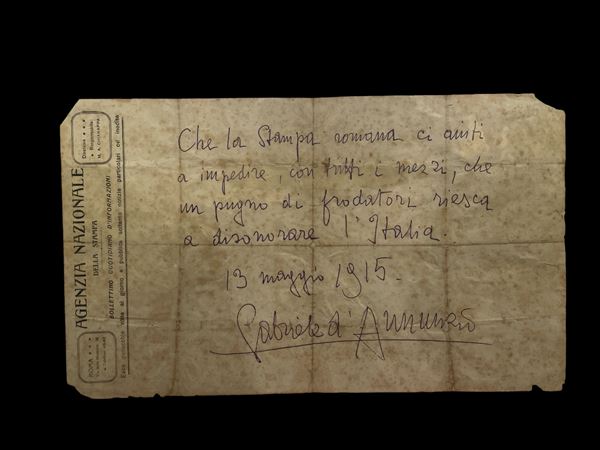 Che la Stampa romana ci aiuti
a impedire, con tutti i mezzi, che
un pugno di frodatori riesca
a disonorare l'Italia.
13 maggio 1915.
Gabriele d'Annunzio
AGENZIA NAZIONALE
DELLA STAMPA
BOLLETTINO QUOTIDIANO D'INFORMAZIONI
Esce più volte al giorno e pubblica soltanto notizie particolari od inedite
ROMA
Direttore
Responsabile